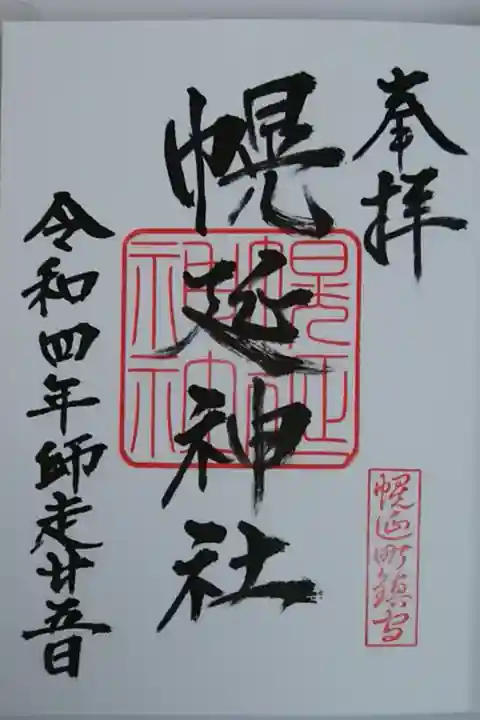 奉拝
幌延町鎮守
幌延神社
令和四年師走廿五日